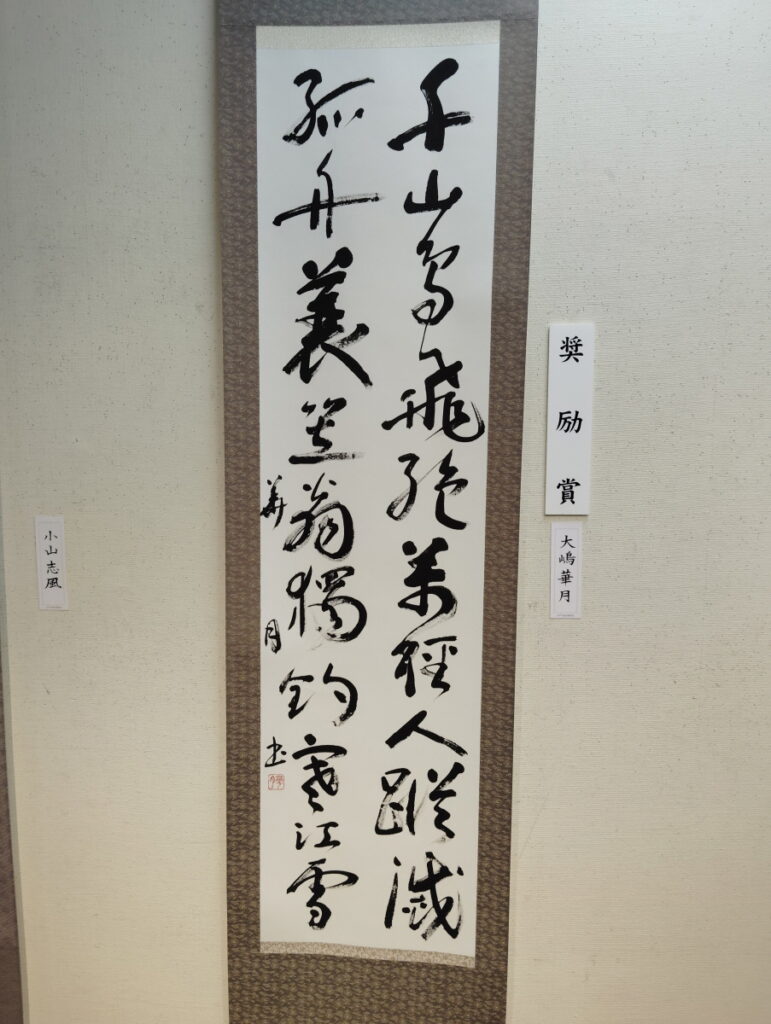 千山鳥飛絶萬徑人蹤滅
孤舟蓑笠翁獨釣寒江雪
華月書
奨励賞
大嶋華月
小山志風